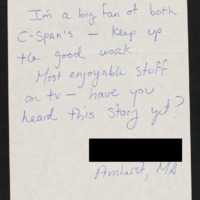 I'm a big fan of both
C-Span's – keep up
the good work.
Most enjoyable stuff
on tv – have you
heard this story yet?
Amherst, MA